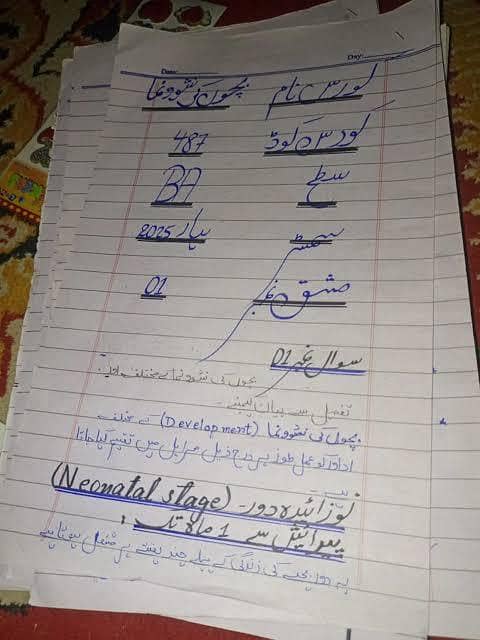 Date: Day:
کورس نام بچوں کی نشوونما
کورس کوڈ 487
سطح BA
سمسٹر بہار 2025
مشق نمبر 01
سوال نمبر 01
بچوں کی نشوونما کے مختلف ادوار
تفصیل سے بیان کیجئے۔
بچوں کی نشوونما (Development) کے مختلف
ادوار کو عمل طور پر درج ذیل مراحل میں تقسیم کیا جاتا
ہے
نوزائیدہ دور - (Neonatal stage)
پیدائش سے 1 ماہ تک :
یہ دور بچے کی زندگی کے پہلے چند ہفتے پر مشتمل ہوتا ہے